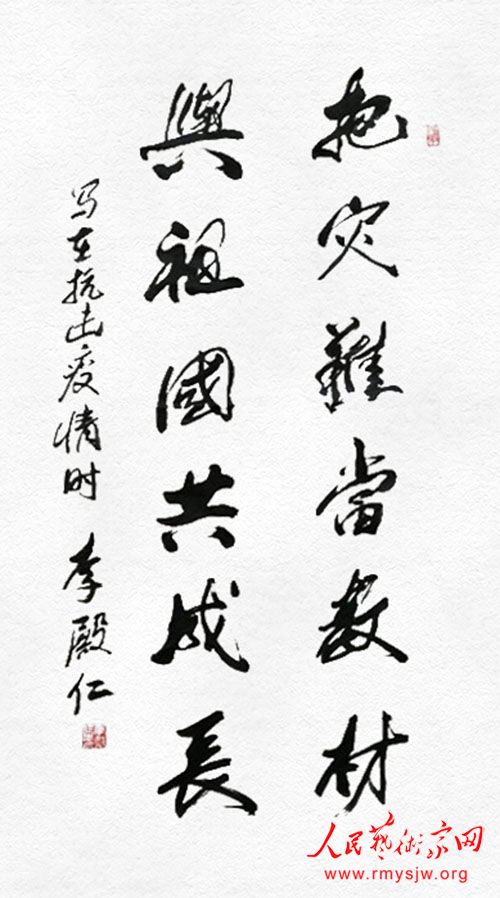 把灾難當教材
與祖國共成長
写在抗击疫情时 李殿仁
人民藝術家网
www.rmysjw.org